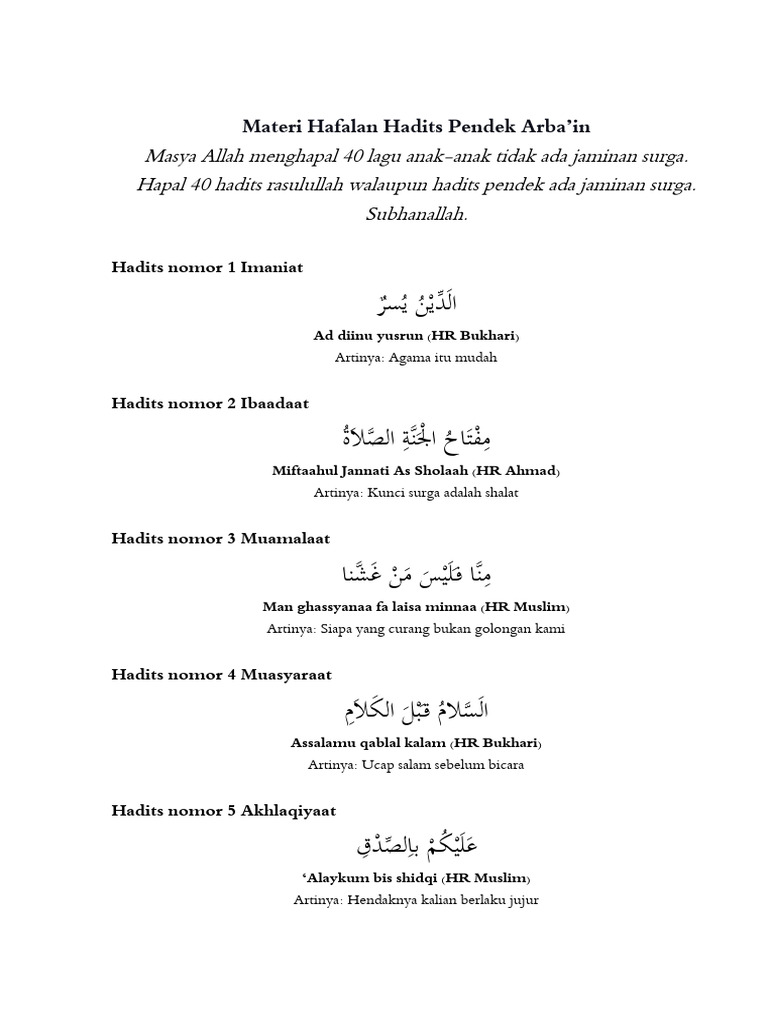 Materi Hafalan Hadits Pendek Arba’in
Masya Allah menghapal 40 lagu anak-anak tidak ada jaminan surga.
Hapal 40 hadits rasulullah walaupun hadits pendek ada jaminan surga.
Subhanallah.
Hadits nomor 1 Imaniat
الَدِّيْنُ يُسرٌ
Ad diinu yusrun (HR Bukhari)
Artinya: Agama itu mudah
Hadits nomor 2 Ibaadaat
مِفْتَاحُ الْجَنَّةِ الصَّلاَةُ
Miftaahul Jannati As Sholaah (HR Ahmad)
Artinya: Kunci surga adalah shalat
Hadits nomor 3 Muamalaat
مِنَّا فَلَيْسَ مَنْ غَشَّنا
Man ghassyanaa fa laisa minnaa (HR Muslim)
Artinya: Siapa yang curang bukan golongan kami
Hadits nomor 4 Muasyaraat
الَسَّلامُ قبْلَ الكَلاَمِ
Assalamu qablal kalam (HR Bukhari)
Artinya: Ucap salam sebelum bicara
Hadits nomor 5 Akhlaqiyaat
عَلَيْكُمْ بِالصِّدْقِ
‘Alaykum bis shidqi (HR Muslim)
Artinya: Hendaknya kalian berlaku jujur